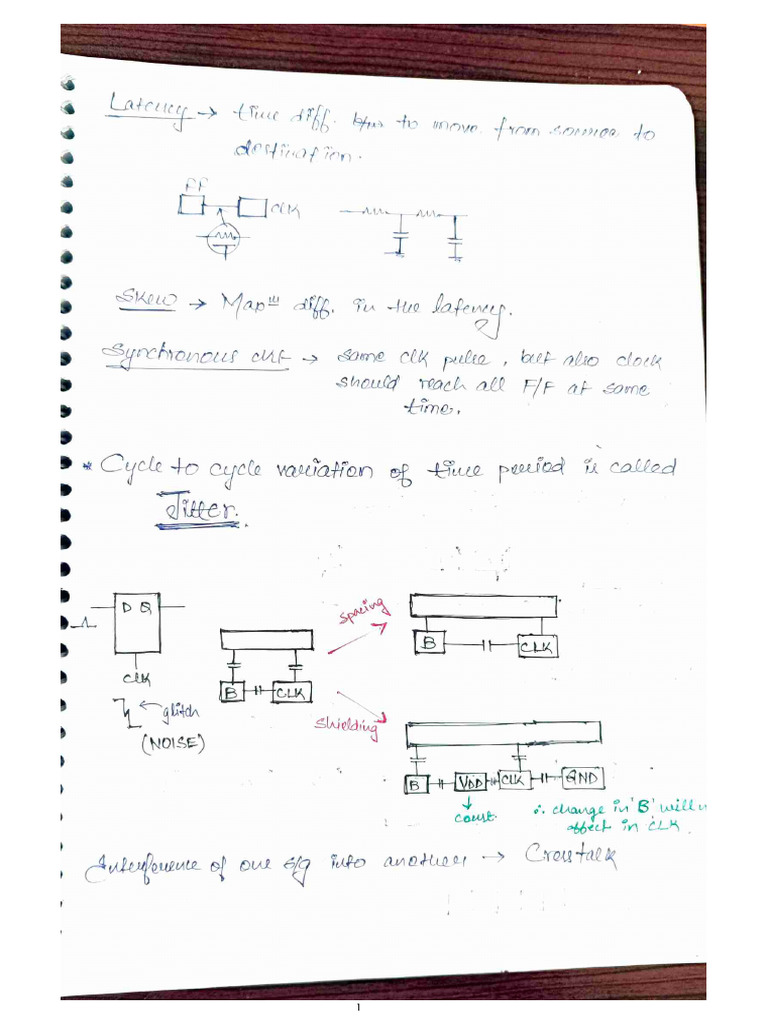 Latency → time diff. to move from source to
destination.
FF
CLK
Skew → Max^m diff. in the latency.
Synchronous ckt → same clk pulse, but also clock
should reach all F/F at same
time.
* Cycle to cycle variation of time period is called
Jitter.
D Q
CLK
glitch
(NOISE)
B CLK
Spacing
B CLK
Shielding
B VDD CLK GND
const.
∴ change in 'B' will n
effect in CLK.
Interference of one s/g into another → Crosstalk
1